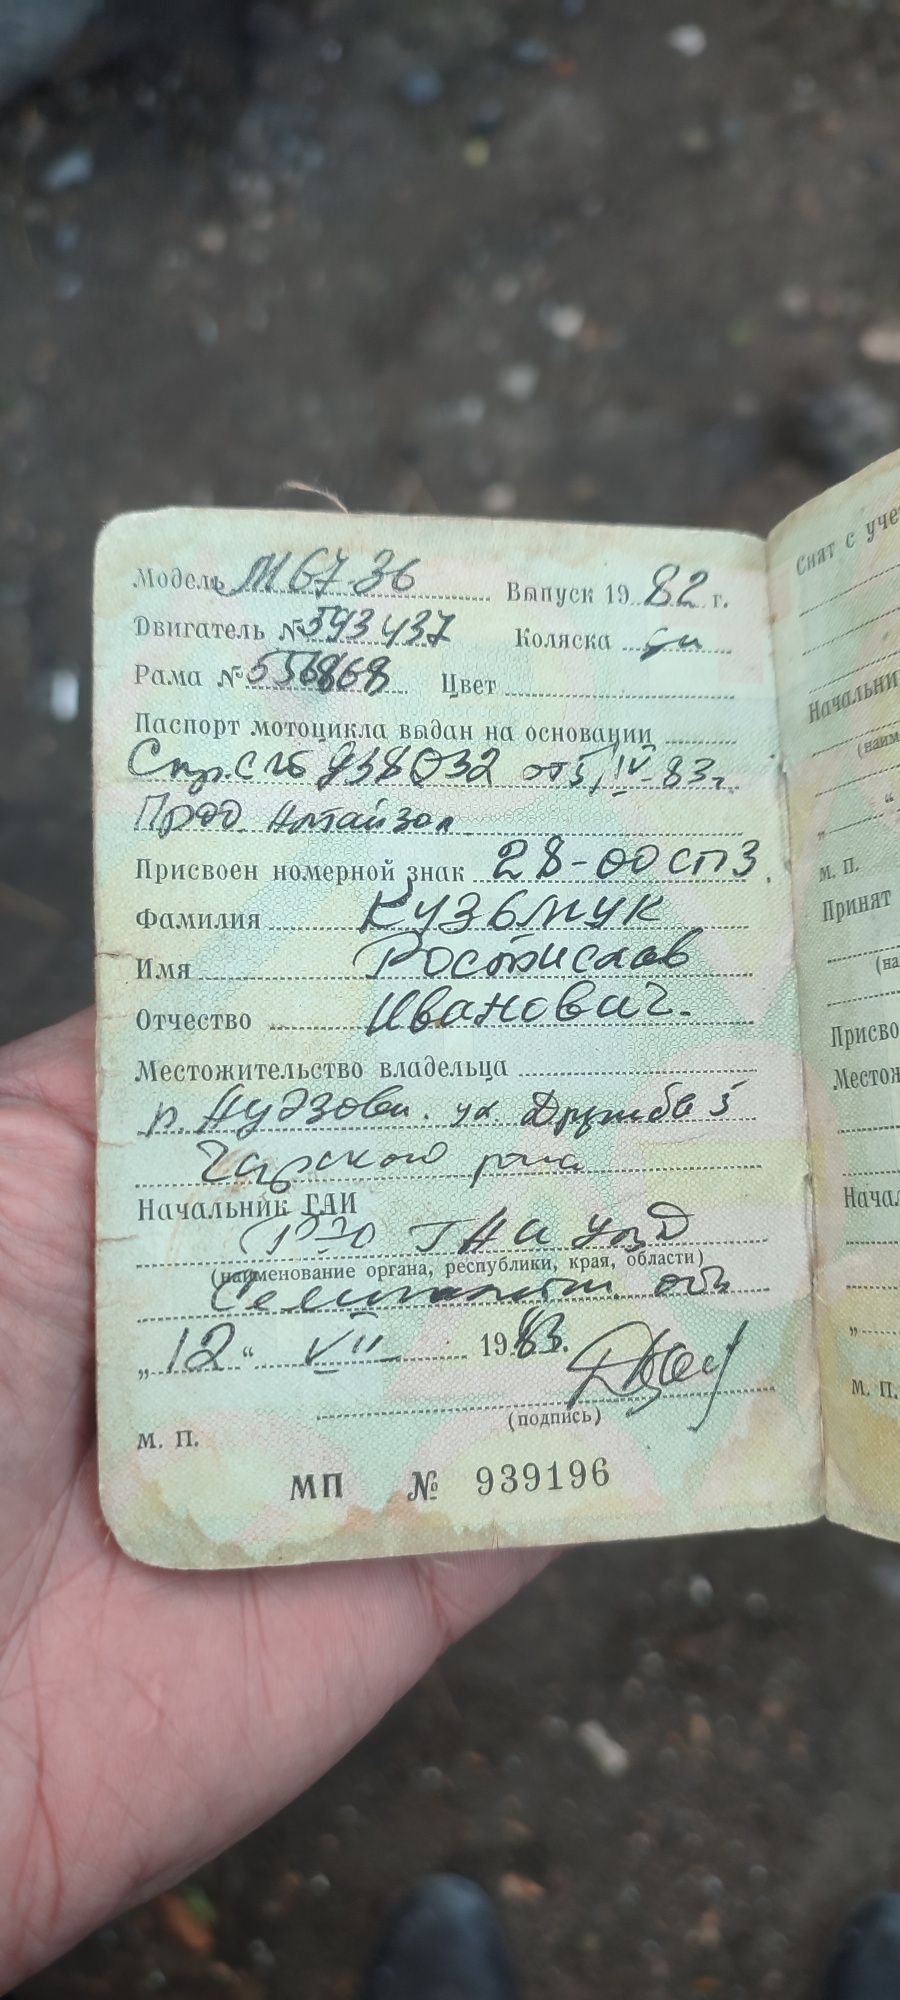 Модель М 67-36 Выпуск 1982 г.
Двигатель № 593437 Коляска
Рама № 556868 Цвет
Паспорт мотоцикла выдан на основании
Спр. СЧБ 938032 от 5/IV-83г.
Прод. Алтайзол
Присвоен номерной знак 28-00 СПЗ
Фамилия Кузьмук
Имя Ростислав
Отчество Иванович
Местожительство владельца
п. Ауэзова. ул. Дружба 5
Чарского р-на
Начальник ГАИ
РЭО ГАИ УВД
(наименование органа, республики, края, области)
Семипалатин. обл
„12“ VII 1983.
(подпись)
м. п.
МП № 939196
Снят с уче
Начальни
(наим
„ “
м. п.
Принят
(на
Присво
Местож
Начал
„
м. п.